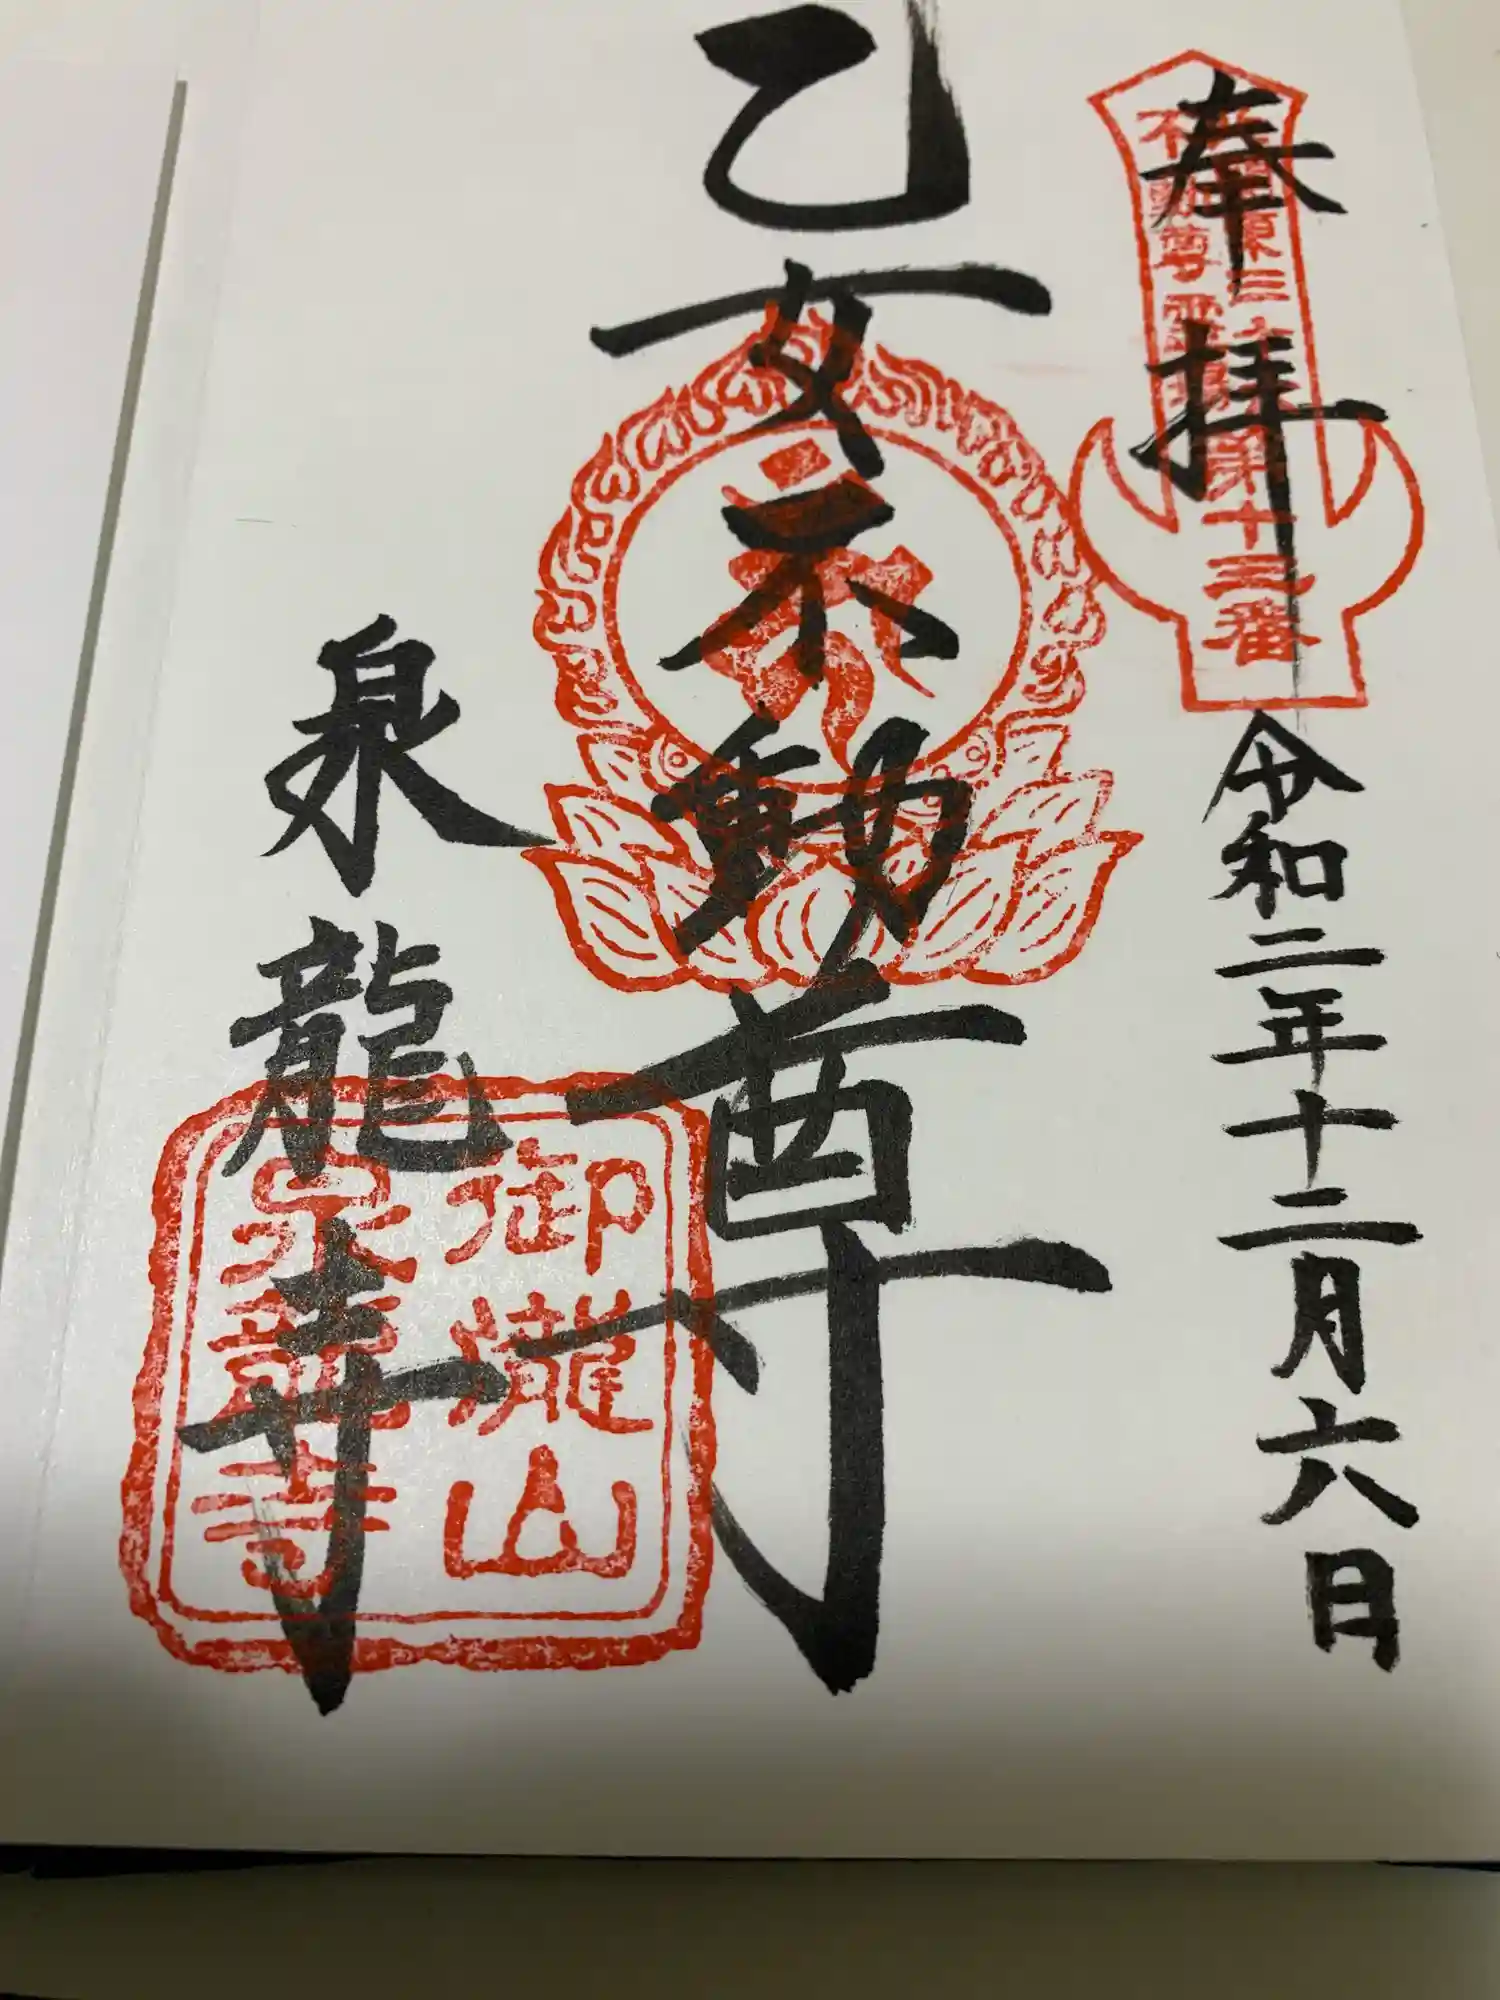 奉拝
令和二年十二月六日
北関東三十六
不動尊霊場
第十三番
乙女不動尊
泉龍寺
御瀧山
泉龍寺